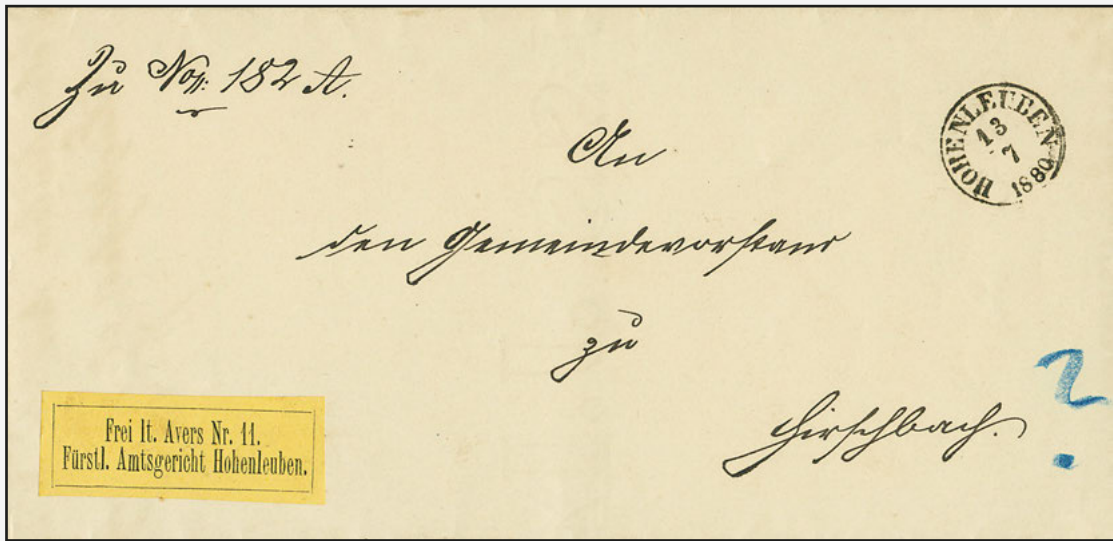 Zu No: 182 A.
HOHENLEUBEN
13
7
1880
An
den Gemeindevorstand
zu
Hirschbach.
?
Frei lt. Avers Nr. 11.
Fürstl. Amtsgericht Hohenleuben.